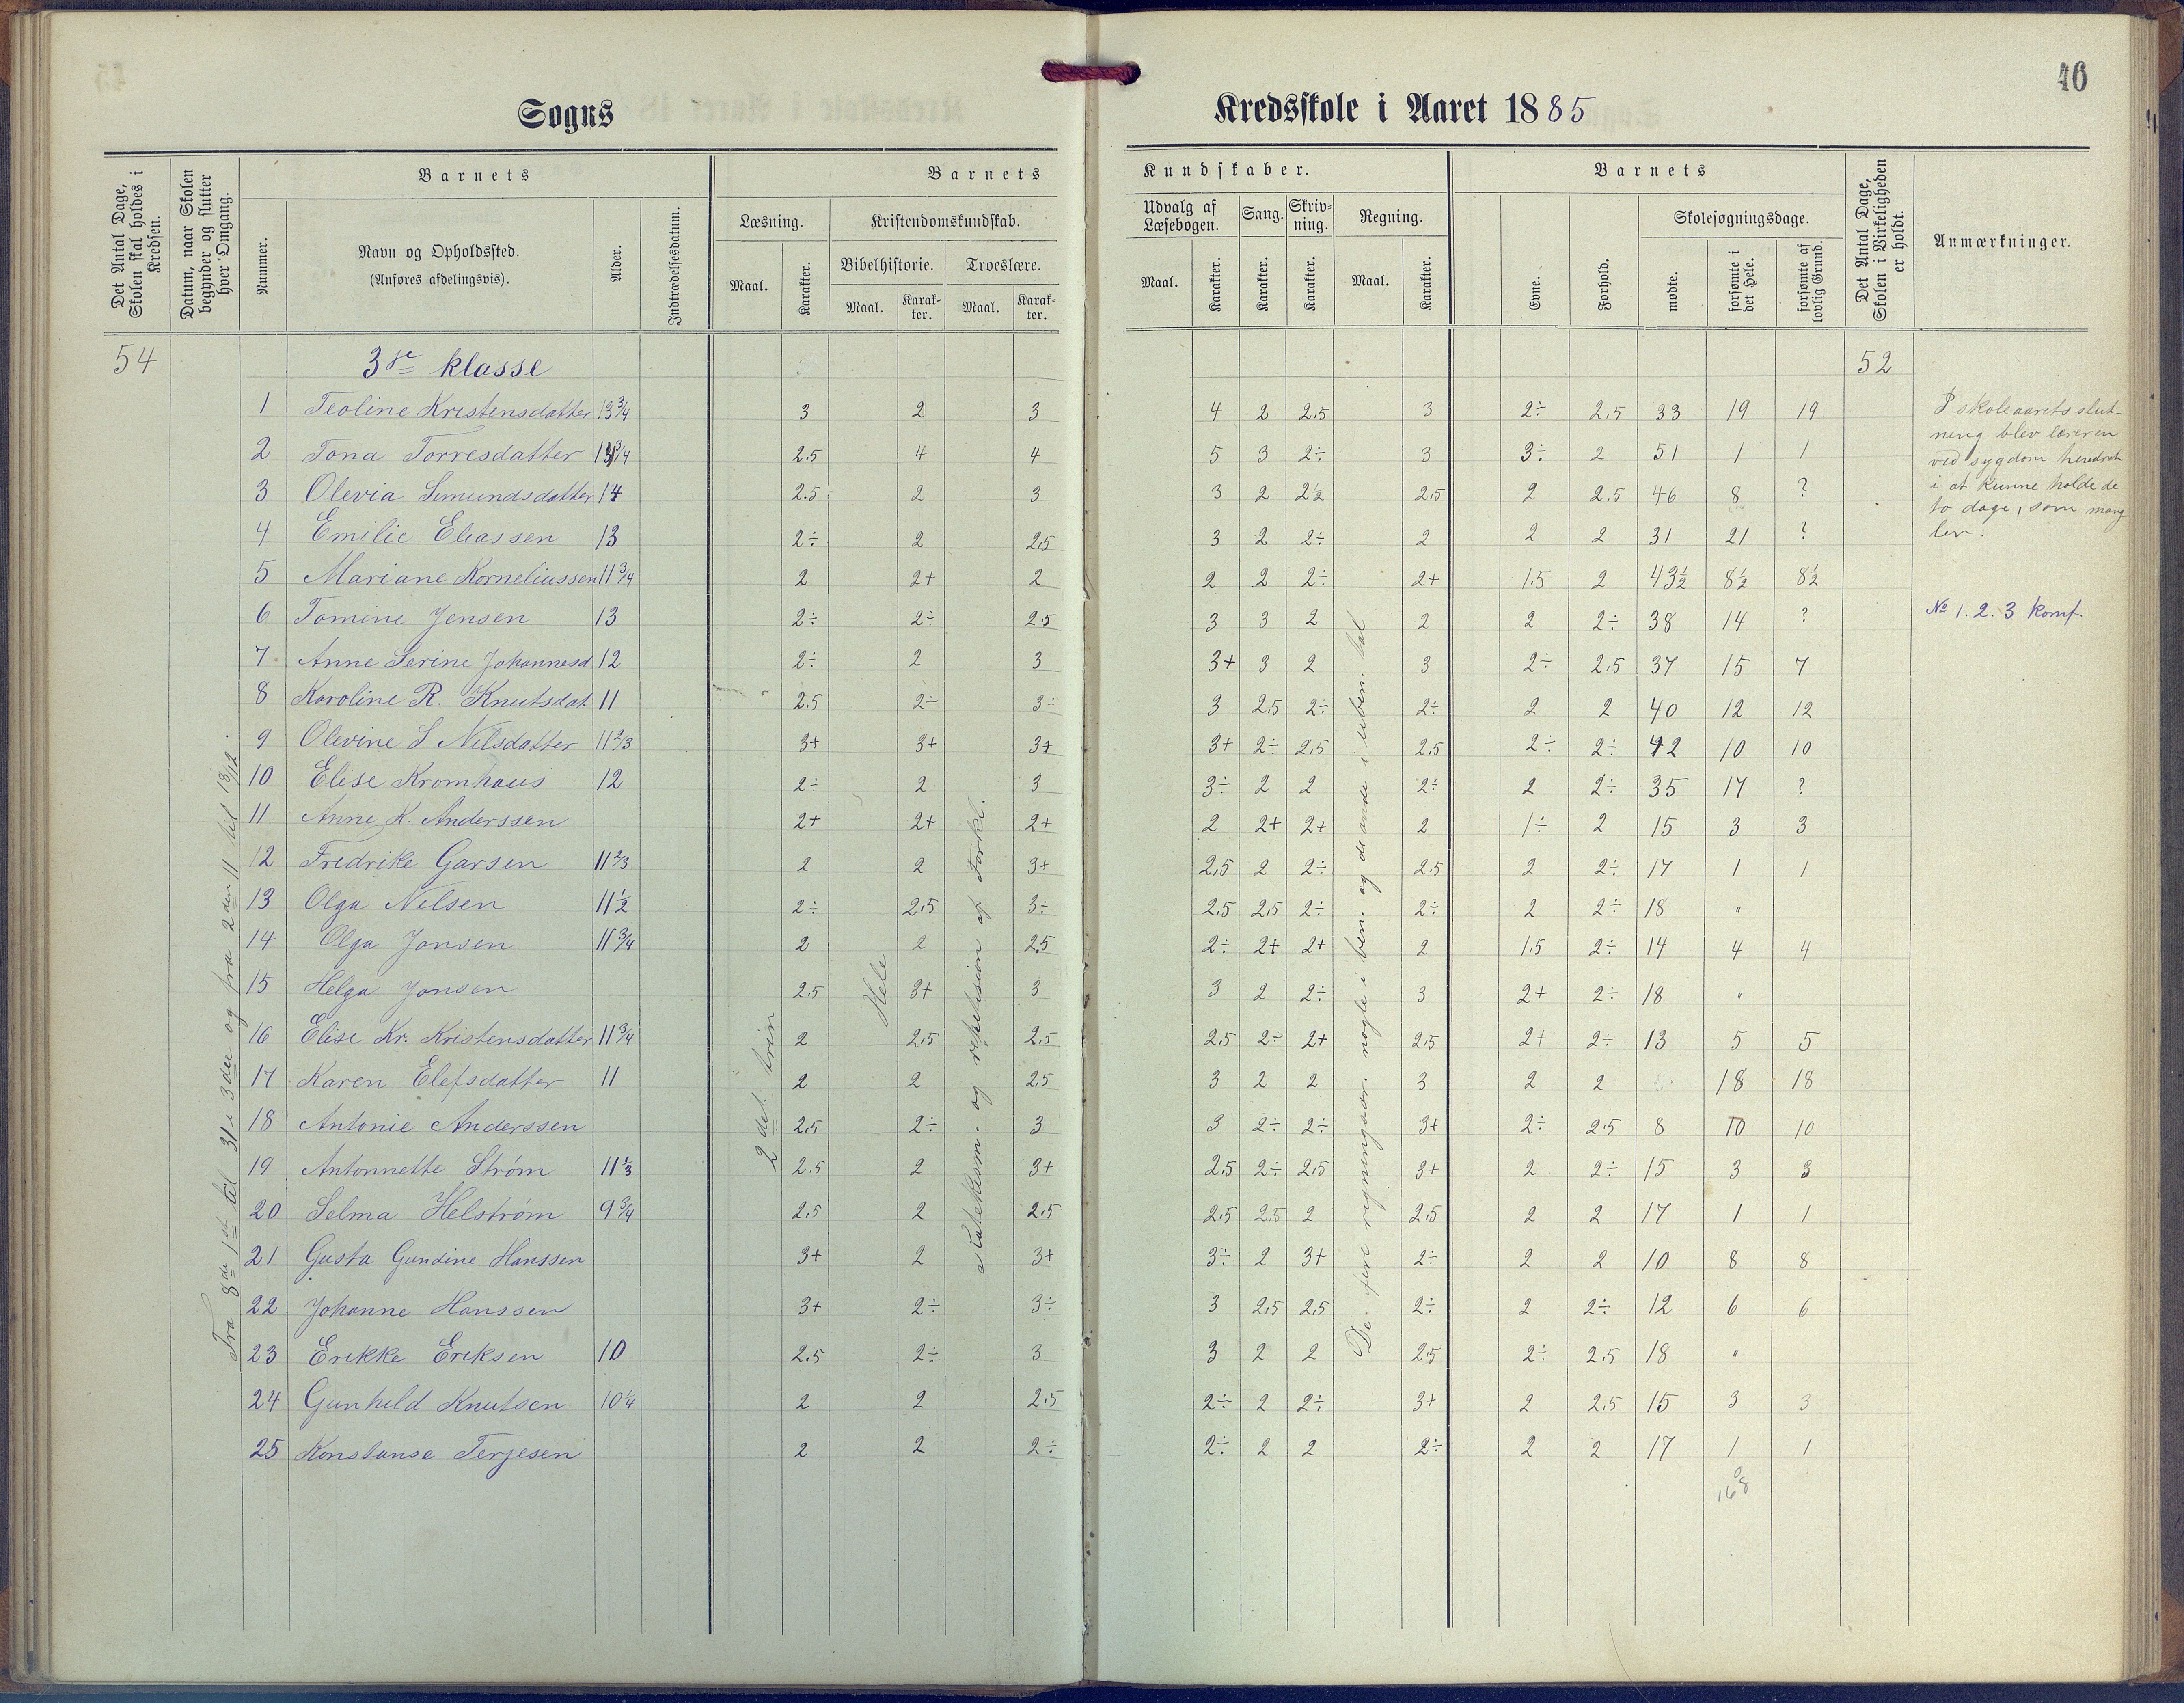 46
Sogns
Kredsskole i Aaret 1885
Det Antal Dage, Skolen skal holdes i Kredsen.
Datum, naar Skolen begynder og slutter hver Omgang.
Barnets
Nummer.
Navn og Opholdssted.
(Anføres afdelingsvis).
Alder.
Indtrædelsesdatum.
Barnets
Læsning.
Maal.
Karakter.
Kristendomskundskab.
Bibelhistorie.
Maal.
Karakter.
Troeslære.
Maal.
Karakter.
Kundskaber.
Udvalg af Læsebogen.
Maal.
Karakter.
Sang.
Karakter.
Skrivning.
Karakter.
Regning.
Maal.
Karakter.
Barnets
Evne.
Forhold.
Skolesøgningsdage.
mødte.
forsømte i det Hele.
forsømte af lovlig Grund.
Det Antal Dage, Skolen i Virkeligheden er holdt.
Anmærkninger.
54 3die klasse 52
1 Teoline Kristensdatter 13 3/4 3 2 3 4 2 2.5 3 2÷ 2.5 33 19 19
2 Tona Torresdatter 13 3/4 2.5 4 4 5 3 2÷ 3 3÷ 2 51 1 1
3 Olevia Simundsdatter 14 2.5 2 3 3 2 2½ 2.5 2 2.5 46 8 ?
4 Emilie Eliassen 13 2÷ 2 2.5 3 2 2÷ 2 2 2 31 21 ?
5 Mariane Korneliussen 11 3/4 2 2+ 2 2 2 2÷ 2+ 1.5 2 43½ 8½ 8½
6 Tomine Jensen 13 2÷ 2÷ 2.5 3 3 2 2 2 2÷ 38 14 ?
7 Anne Serine Johannesd. 12 2÷ 2 3 3+ 3 2 3 2÷ 2.5 37 15 7
8 Karoline R. Knutsdat 11 2.5 2÷ 3÷ 3 2.5 2÷ 2÷ 2 2 40 12 12
9 Olevine S Nilsdatter 11 2/3 3+ 3+ 3+ 3+ 2÷ 2.5 2.5 2÷ 2÷ 42 10 10
10 Elise Kromhaus 12 2÷ 2 3 3÷ 2 2 2÷ 2 2÷ 35 17 ?
11 Anne K. Anderssen 2+ 2+ 2+ 2 2+ 2+ 2 1÷ 2 15 3 3
12 Fredrike Garsen 11 2/3 2 2 3+ 2.5 2 2÷ 2.5 2 2÷ 17 1 1
13 Olga Nilsen 11½ 2÷ 2.5 3÷ 2.5 2.5 2÷ 2÷ 2 2÷ 18 "
14 Olga Jonsen 11 3/4 2 2 2.5 2÷ 2+ 2+ 2 1.5 2÷ 14 4 4
15 Helga Jonsen 2.5 3+ 3 3 2 2÷ 3 2+ 2÷ 18 "
16 Elise Kr. Kristensdatter 11 3/4 2 2.5 2.5 2.5 2÷ 2+ 2.5 2+ 2÷ 13 5 5
17 Karen Elefsdatter 11 2 2 2.5 3 2 2 3 2 2 18 18
18 Antonie Anderssen 2.5 2÷ 3 3 2÷ 2÷ 3+ 2÷ 2.5 8 10 10
19 Antonnette Strøm 11 1/3 2.5 2 3+ 2.5 2÷ 2.5 3+ 2 2÷ 15 3 3
20 Selma Helstrøm 9 3/4 2.5 2 2.5 2.5 2.5 2 2.5 2 2 17 1 1
21 Gusta Gundine Hanssen 3+ 2 3+ 3÷ 2 3+ 2÷ 2 2 10 8 8
22 Johanne Hanssen 3+ 2÷ 3÷ 3 2.5 2.5 2÷ 2 2÷ 12 6 6
23 Erikke Eriksen 10 2.5 2÷ 3 3 2 2 2.5 2÷ 2.5 18 "
24 Gunhild Knutsen 10 1/4 2 2 2.5 2÷ 2 2÷ 3+ 2 2.5 15 3 3
25 Konstanse Terjesen 2 2 2÷ 2÷ 2 2 2÷ 2 2 17 1 1
168
Fra 8de 1st til 31 i 3die og fra 2den 11 til 13/12.
2det trin
Hele
katekism. og repetision af Forkl.
De fire regningsar. nogle i ben. og de andre i uben. tal
I skoleaarets slut-
ning blev læreren
ved sygdom hindret
i at kunne holde de
to dage, som mang-
ler.
No 1. 2. 3 konf.